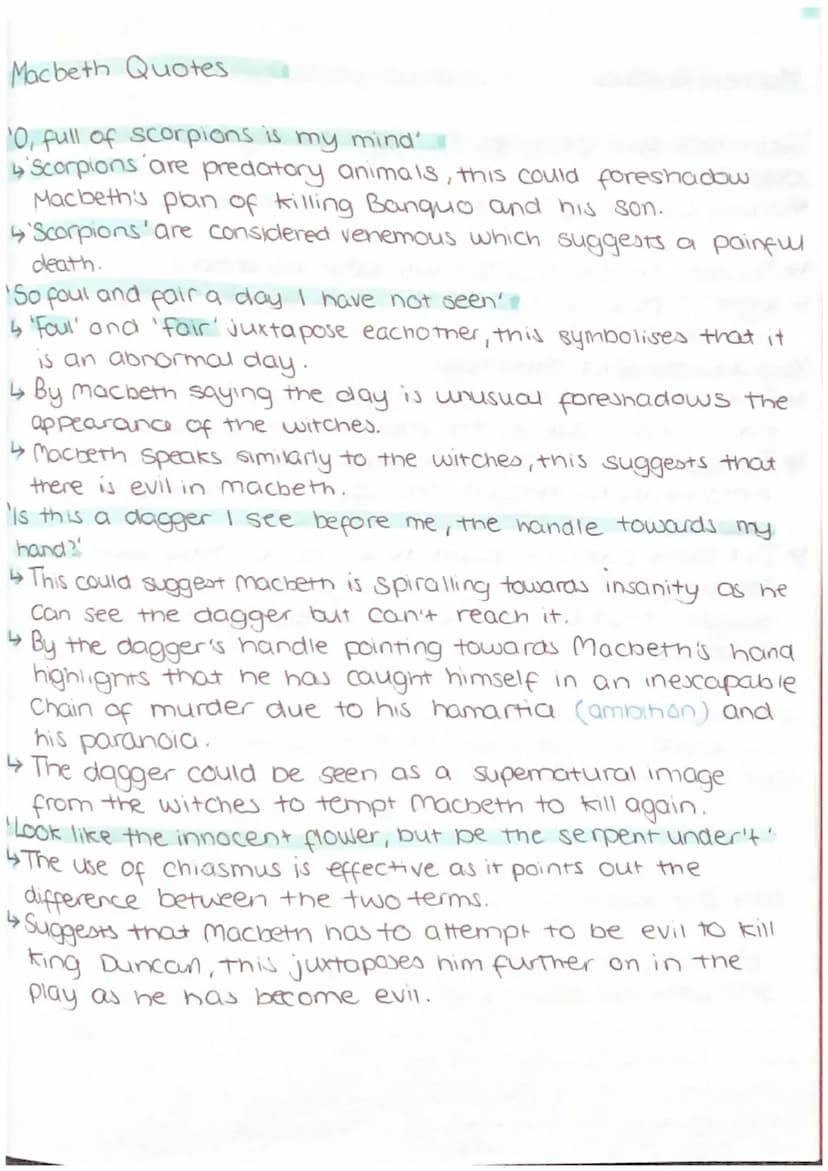 Macbeth Quotes
'O, full of scorpions is my mind'
↳ 'Scorpions' are predatory animals, this could foreshadow
Macbeth's plan of killing Banquo and his son.
↳ 'Scorpions' are considered venemous which suggests a painful
death.
'So foul and fair a day I have not seen'
↳ 'Foul' and 'fair' juxtapose eachother, this symbolises that it
is an abnormal day.
↳ By macbeth saying the day is unusual foreshadows the
appearance of the witches.
↳ Macbeth speaks similarly to the witches, this suggests that
there is evil in macbeth.
'Is this a dagger I see before me, the handle towards my
hand?'
↳ This could suggest macbeth is spiralling towards insanity as he
can see the dagger but can't reach it.
↳ By the dagger's handle pointing towards Macbeth's hand
highlights that he has caught himself in an inescapable
chain of murder due to his hamartia (ambition) and
his paranoia.
↳ The dagger could be seen as a supernatural image
from the witches to tempt Macbeth to kill again.
'Look like the innocent flower, but be the serpent under't'
↳ The use of chiasmus is effective as it points out the
difference between the two terms.
↳ Suggests that Macbeth has to attempt to be evil to kill
King Duncan, this juxtaposes him further on in the
play as he has become evil.